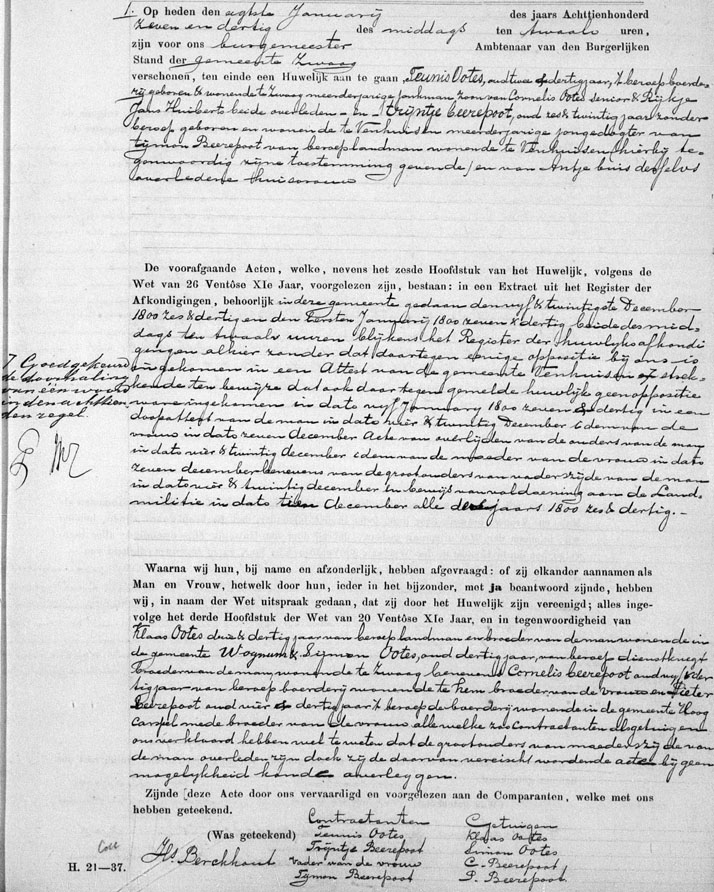 1. Op heden den agtste Januarij des jaars Achttienhonderd
zeven en dertig des middags ten twaalv uren,
zijn voor ons burgemeester Ambtenaar van den Burgerlijken
Stand der gemeente Zwaag
verschenen, ten einde een Huwelijk aan te gaan, Teunis Ootes, oud twee & dertig jaar, 't beroep boerde-
rij geboren & wonende te Zwaag meerderjarige jonkman zoon van Cornelis Ootes senior & Rijkje
Jans Huiberts beide overleden - en - Trijntje Beerepoot, oud zes & twintig jaar zonder
beroep geboren en wonende te Venhuisen meerderjarige jongedogter van
Tijmen Beerepoot van beroep landman wonende te Venhuisen (hierbij te-
gonwoordig zijne toestemming gevende) en van Antje buis deszelvs
overledene huisvrouw
De voorafgaande Acten, welke, nevens het zesde Hoofdstuk van het Huwelijk, volgens de
Wet van 26 Ventôse XIe Jaar, voorgelezen zijn, bestaan: in een Extract uit het Register der
Afkondigingen, behoorlijk in deze gemeente gedaan den vijf & twintigste December
1800 zes & dertig en den Eersten Januarij 1800 zeven & dertig, beide des mid-
dags ten twaalv uuren blijkens het Register der huwlijks afkondi
gingen alhier zonder dat daartegen eenige oppositie bij ons is
ingekomen in een Attest van de gemeente Venhuisen strek-
kende ten bewijze dat ook daartegen gemelde huwlijk geen oppositie
ware ingekomen in dato vijf Januarij 1800 zeven & dertig in een
doopattest van de man in dato vier & twintig December idem van de
vrouw in dato zeven december Acte van overlijden van de ouders van de man
in dato vier & twintig december idem van de moeder van de vrouw in dato
zeven december benevens van de grootouders van vaderszijde van de man
in dato vier & twintig december en bewijs van voldoening aan de Land-
militie in dato tien december alle des jaars 1800 zes & dertig.-
Goedgekeurd
de doorhaling
van een woord
in den achttien
den regel.
Waarna wij hun, bij name en afzonderlijk, hebben afgevraagd: of zij elkander aannamen als
Man en Vrouw, hetwelk door hun, ieder in het bijzonder, met ja beantwoord zijnde, hebben
wij, in naam der Wet uitspraak gedaan, dat zij door het Huwelijk zijn vereenigd; alles inge-
volge het derde Hoofdstuk der Wet van 20 Ventôse XIe Jaar, en in tegenwoordigheid van
Klaas Ootes drie & dertig jaar van beroep landman en broeder van de man wonende in
de gemeente Wognum & Sijmon Ootes, oud dertig jaar, van beroep dienstknegt
broeder van de man, wonende te Zwaag benevens Cornelis Beerepoot oud vijf & der-
tig jaar van beroep boerderij wonende te Hem broeder van de vrouw en Pieter
Beerepoot oud vier & dertig jaar 't beroep de boerderij wonende in de gemeente Hoog
carspel mede broeder van de vrouw alle welke zoo Contractanten als getuigen
ons verklaard hebben wel te weten dat de grootouders van moederszijde van
de man overleden zijn doch zij de daarvan vereischt wordende acte bij geen
mogelijkheid konde overleggen.
Zijnde deze Acte door ons vervaardigd en voorgelezen aan de Comparanten, welke met ons
hebben geteekend.
Contractanten Getuigen
(Was geteekend) Teunis Ootes Klaas Ootes
Trijntje Beerepoot Simon Ootes
Hs Berckhout Vader van de vrouw C. Beerepoot
Tymen Beerepoot P. Beerepoot
H. 21—37.